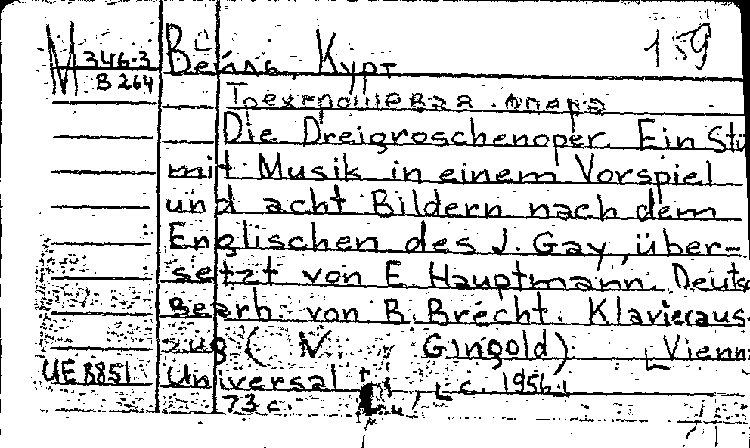 159
М 346-3 Вейль, Курт
В 264
Трехгрошевая опера
Die Dreigroschenoper. Ein Stü
mit Musik in einem Vorspiel
und acht Bildern nach dem
Englischen des J. Gay, über-
setzt von E. Hauptmann. Deuts
Bearb. von B. Brecht. Klavieraus
zug (N. Gingold) [Vienn
UE 8851 Universal [c. 1956]
73 c.